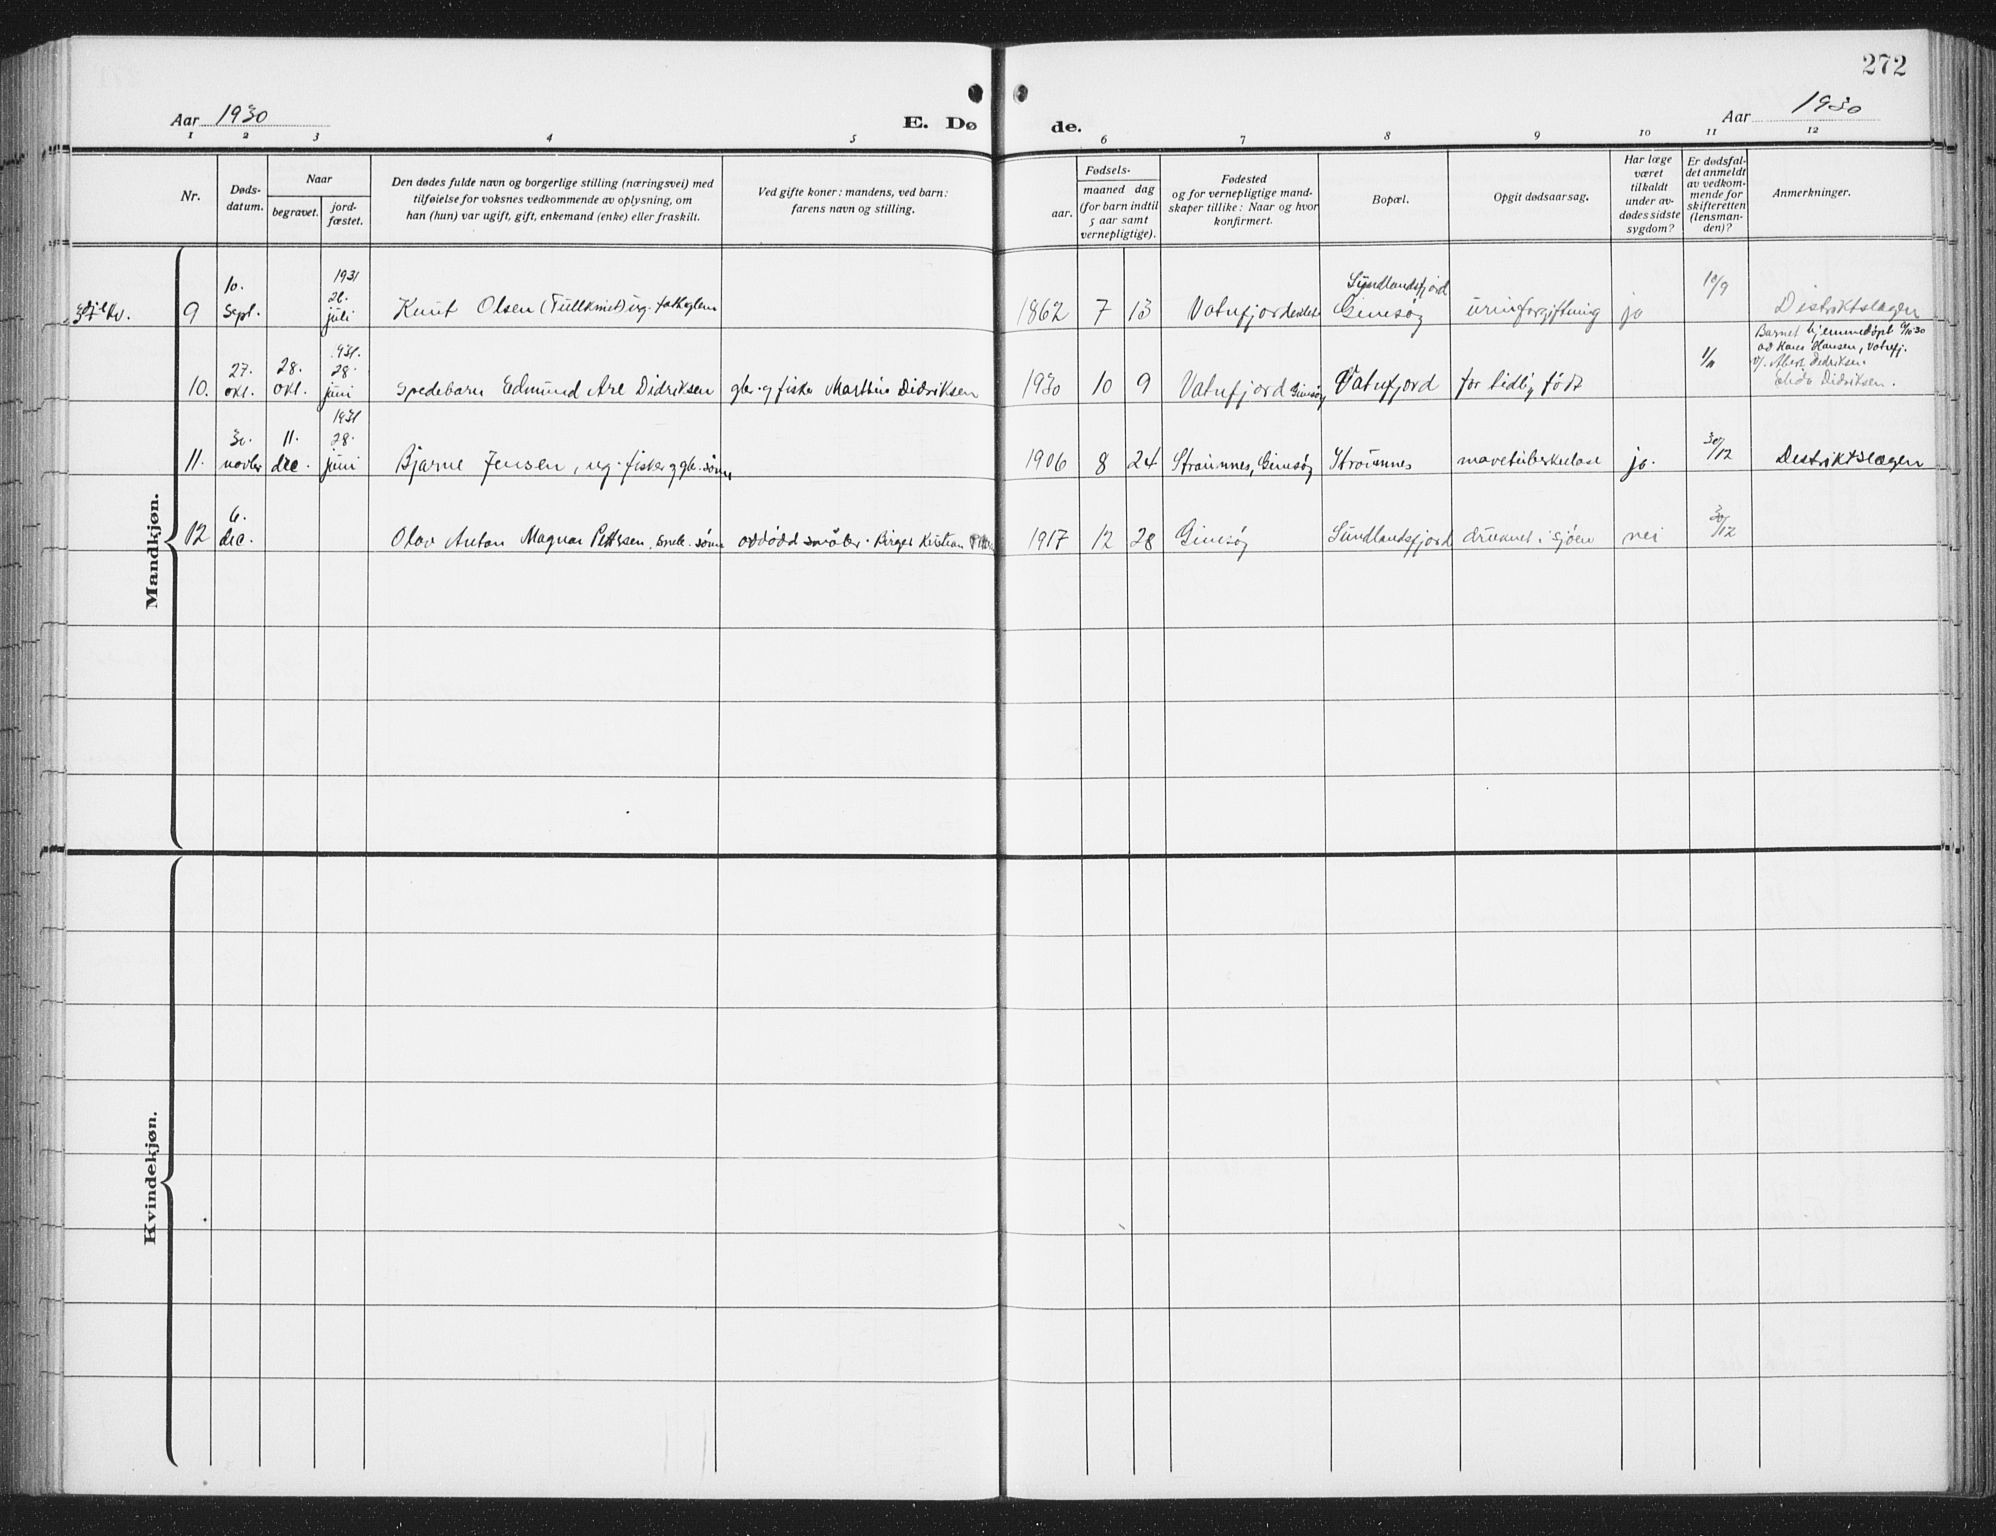 272
Aar 1930
E. Dø de.
Aar 1930
1 2 3 4 5 6 7 8 9 10 11 12
Nr.
Døds-
datum.
Naar
begravet.
jord-
fæstet.
Den dødes fulde navn og borgerlige stilling (næringsvei) med
tilføielse for voksnes vedkommende av oplysning, om
han (hun) var ugift, gift, enkemand (enke) eller fraskilt.
Ved gifte koner: mandens, ved barn:
farens navn og stilling.
Fødsels-
aar.
maaned dag
(for barn indtil
5 aar samt
vernepligtige).
Fødested
og for vernepligtige mand-
skaper tillike: Naar og hvor
konfirmert.
Bopæl.
Opgit dødsaarsag.
Har læge
været
tilkaldt
under av-
dødes sidste
sygdom?
Er dødsfal-
det anmeldt
av vedkom-
mende for
skifteretten
(lensman-
den)?
Anmerkninger.
Mandkjøn.
9 10. Sept. 1931 26. juli Knut Olsen (Tullknut) ug. 1862 7 13 Vatnfjord Sundlandsfjord Gimsøy urinforgiftning ja 10/9 Distriktslægen
10. 27. okt. 28. okt. 1931. 28. juni Spedebarn Edmund Are Didriksen gbr. og fisker Marthin Didriksen 1930 10 9 Vatnfjord Gimsøy Vatnfjord for tidlig født 1/11 Barnet hjemmedøpt
av Hans Hansen, Vatnfj.
v/. Albert Didriksen.
Didriksen.
11. 30. novbr 11. dec. 1931 28. juni Bjarne Jensen, ug. fisker, gbr. sønn, 1906 8 24 Straumnes, Gimsøy Straumnes mavetuberkulose ja. 30/12 Distriktslægen
12 6. dec. Olav Anton Magnar Pettersen, sønn avdød Birger Kristian 1917 12 28 Gimsøy Sundlandsfjord druknet i sjøen nei 30/12
Kvindekjøn.